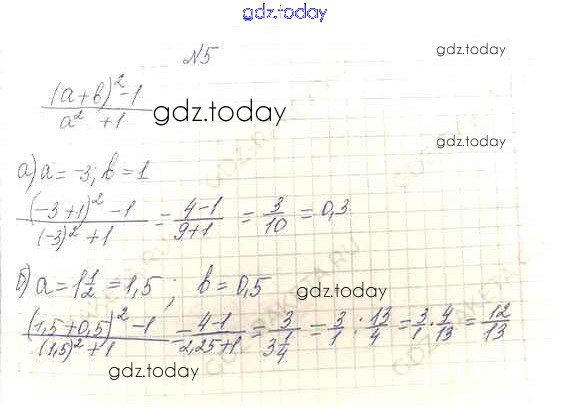 gdz.today
№5
gdz.today
((a+b)²-1)/(a²+1)
gdz.today
gdz.today
а) a=-3; b=1
((-3+1)²-1)/((-3)²+1) = (4-1)/(9+1) = 3/10 = 0,3
б) a=1 1/2=1,5; b=0,5
gdz.today
((1,5+0,5)²-1)/((1,5)²+1) = (4-1)/(2,25+1) = 3/(3 1/4) = 3/1 : 13/4 = 3/1 · 4/13 = 12/13
gdz.today